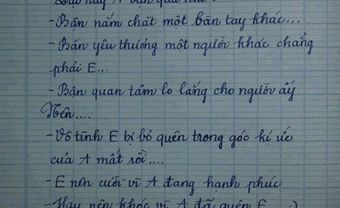 - Bận nắm chặt một bàn tay khác...
- Bận yêu thương một người khác chẳng
phải E...
- Bận quan tâm lo lắng cho người ấy
Nên....
- Vô tình E bị bỏ quên trong góc kí ức
của A mất rồi....
- E nên cười vì A đang hạnh phúc
- Hay nên khóc vì A đã quên E